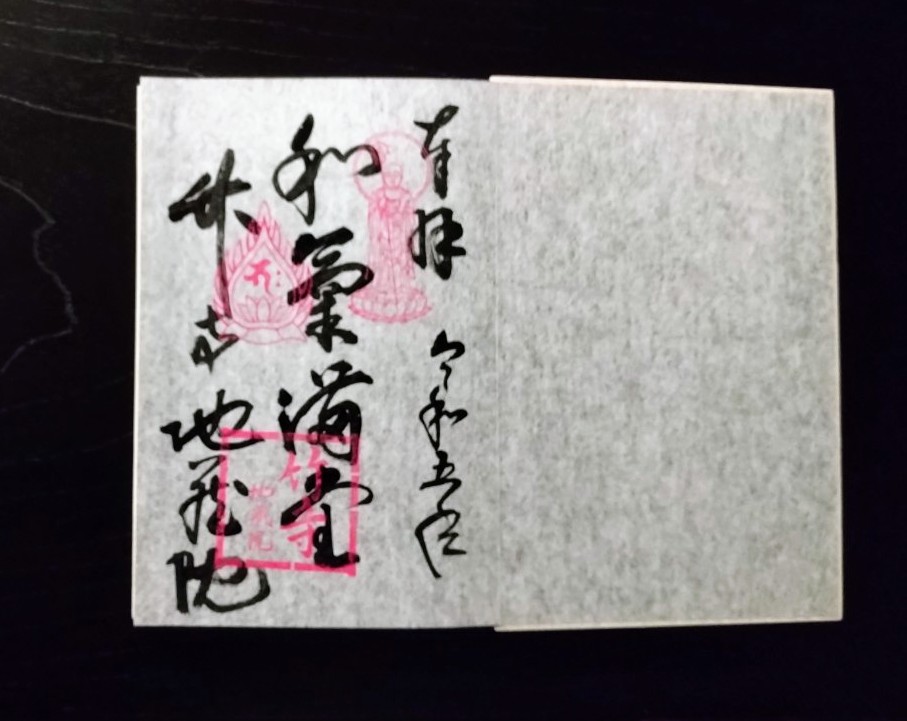 奉拝 令和五年
和氣満堂
竹寺 地蔵院
竹寺
地蔵院